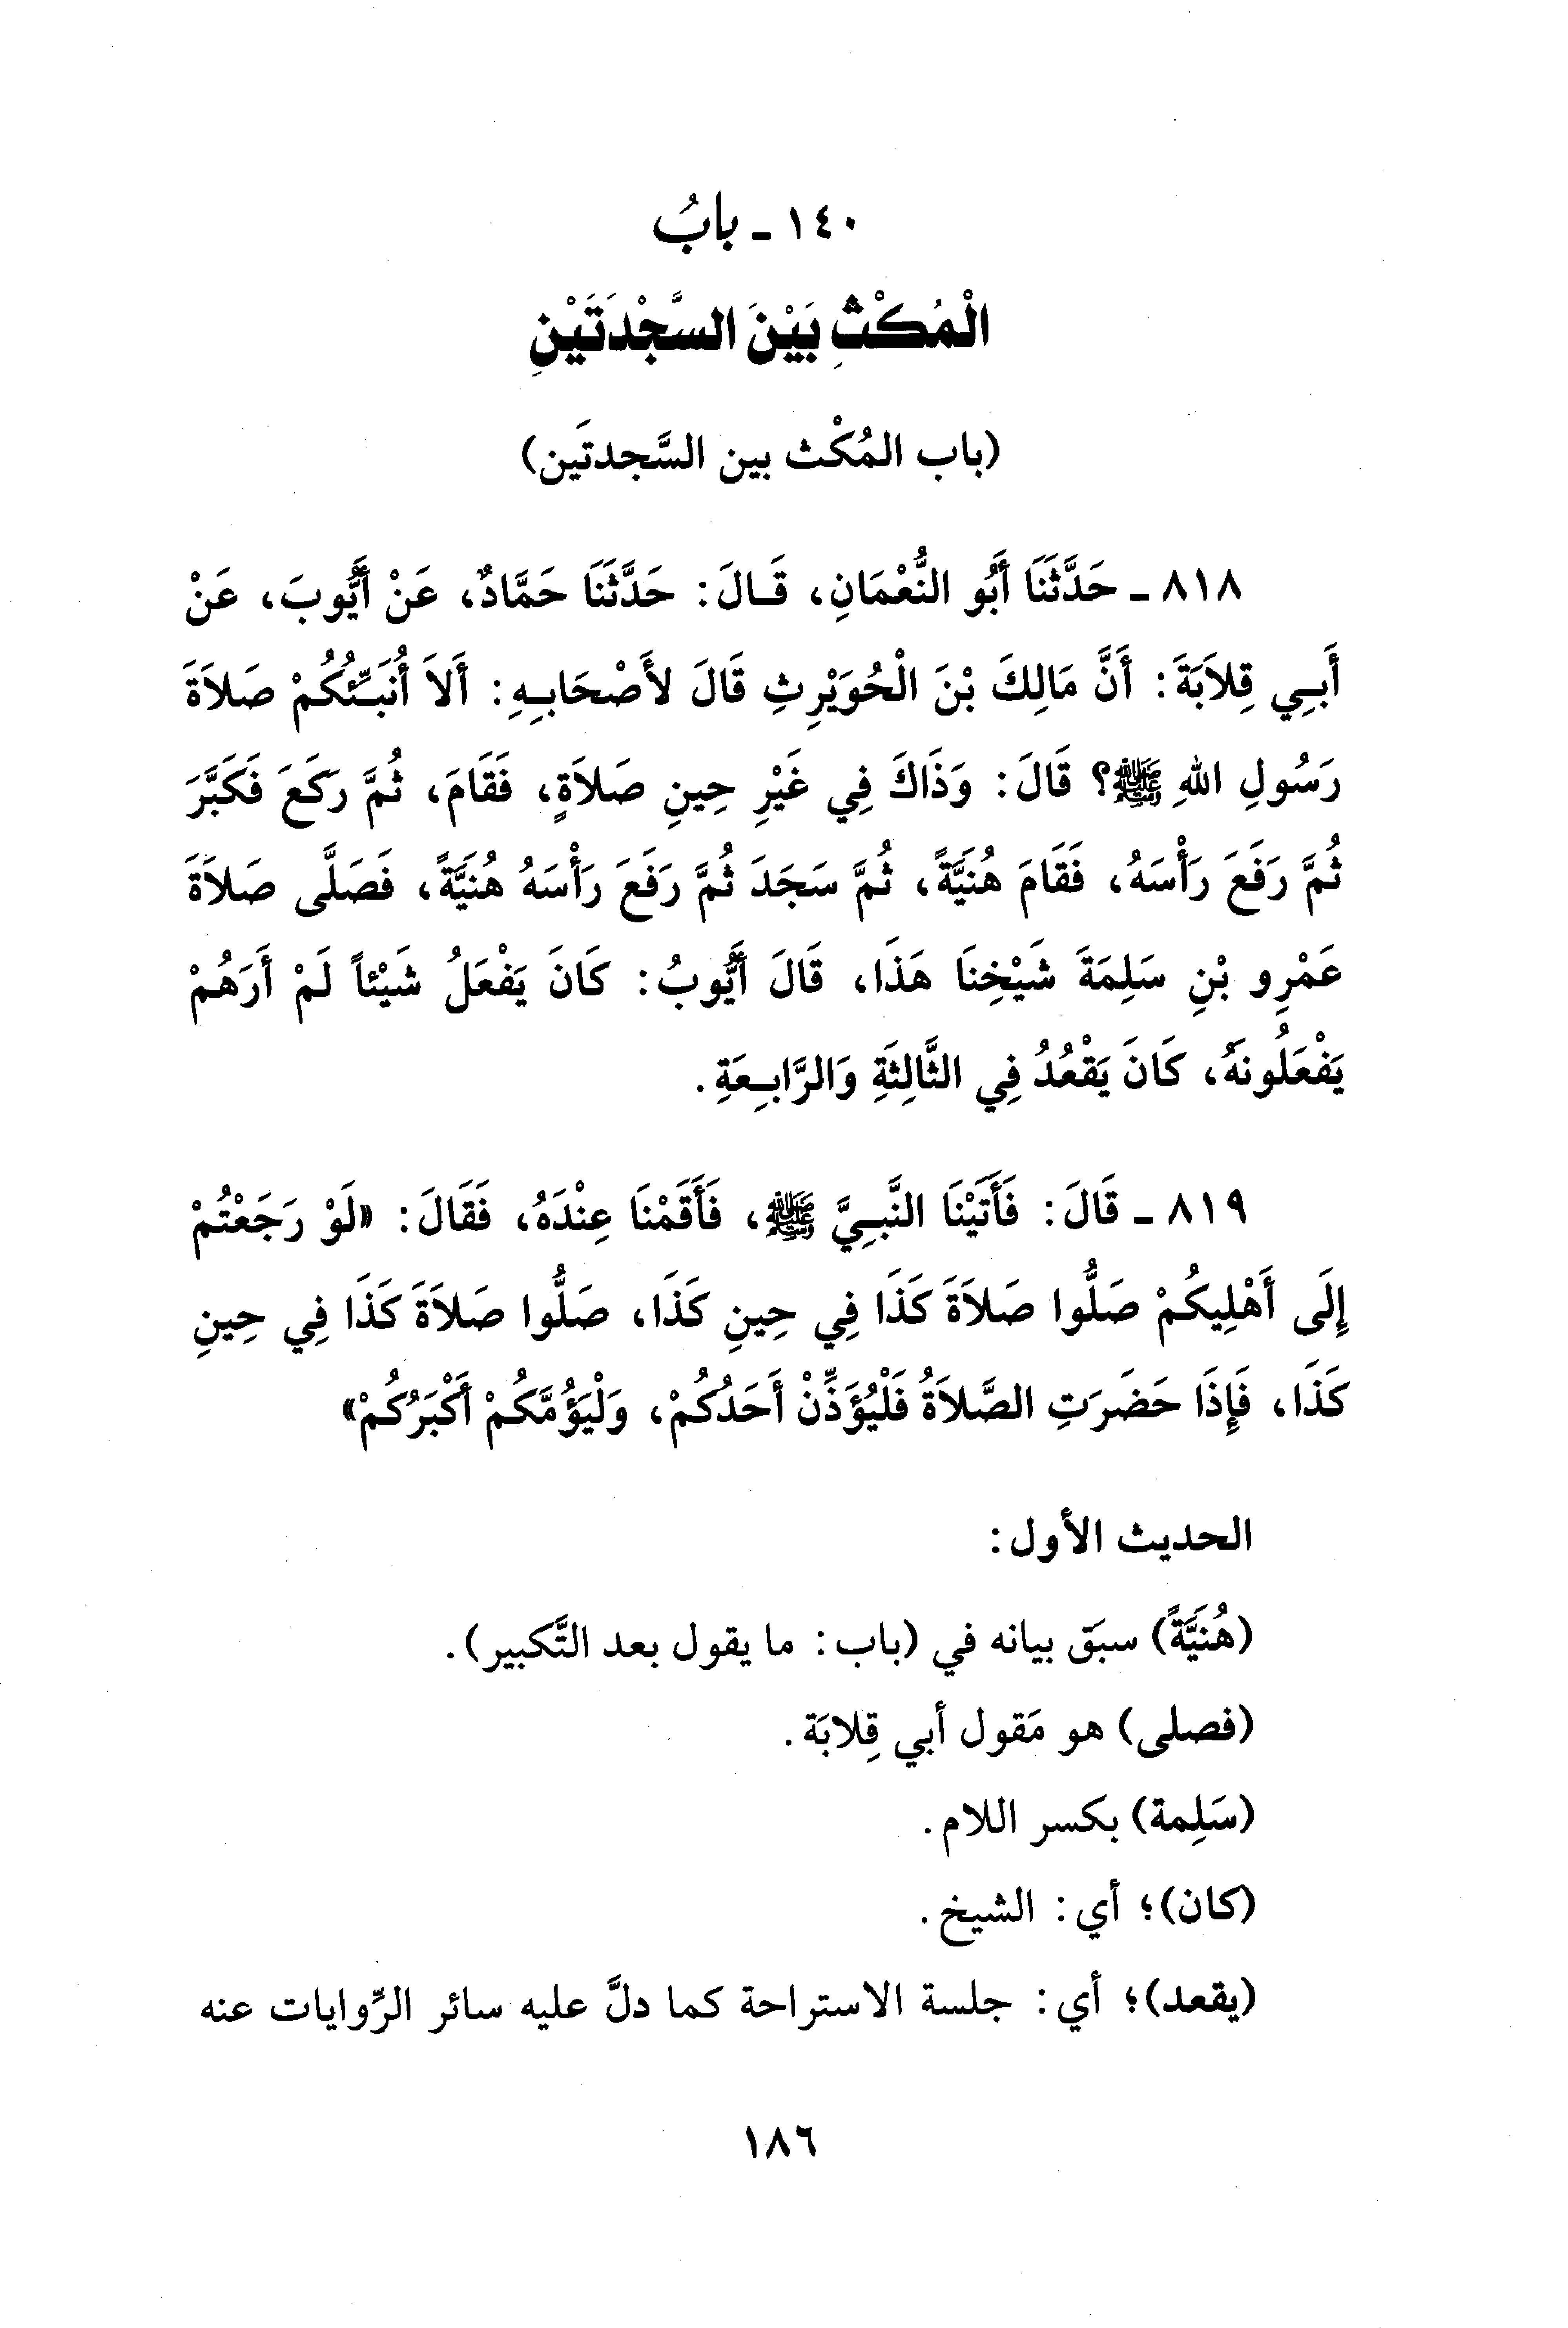 ١٤٠ ـ بابُ
الْمُكْثِ بَيْنَ السَّجْدَتَيْنِ
(باب المُكْث بين السَّجدتَين)
٨١٨ ـ حَدَّثَنَا أَبُو النُّعْمَانِ، قَالَ: حَدَّثَنَا حَمَّادٌ، عَنْ أَيُّوبَ، عَنْ
أَبِي قِلاَبَةَ: أَنَّ مَالِكَ بْنَ الْحُوَيْرِثِ قَالَ لأَصْحَابِهِ: أَلاَ أُنَبِّئُكُمْ صَلاَةَ
رَسُولِ اللهِ ﷺ؟ قَالَ: وَذَاكَ فِي غَيْرِ حِينِ صَلاَةٍ، فَقَامَ، ثُمَّ رَكَعَ فَكَبَّرَ
ثُمَّ رَفَعَ رَأْسَهُ، فَقَامَ هُنَيَّةً، ثُمَّ سَجَدَ ثُمَّ رَفَعَ رَأْسَهُ هُنَيَّةً، فَصَلَّى صَلاَةَ
عَمْرِو بْنِ سَلِمَةَ شَيْخِنَا هَذَا، قَالَ أَيُّوبُ: كَانَ يَفْعَلُ شَيْئاً لَمْ أَرَهُمْ
يَفْعَلُونَهُ، كَانَ يَقْعُدُ فِي الثَّالِثَةِ وَالرَّابِعَةِ.
٨١٩ ـ قَالَ: فَأَتَيْنَا النَّبِيَّ ﷺ، فَأَقَمْنَا عِنْدَهُ، فَقَالَ: «لَوْ رَجَعْتُمْ
إِلَى أَهْلِيكُمْ صَلُّوا صَلاَةَ كَذَا فِي حِينِ كَذَا، صَلُّوا صَلاَةَ كَذَا فِي حِينِ
كَذَا، فَإِذَا حَضَرَتِ الصَّلاَةُ فَلْيُؤَذِّنْ أَحَدُكُمْ، وَلْيَؤُمَّكُمْ أَكْبَرُكُمْ»
الحديث الأول:
(هُنَيَّةً) سبَق بيانه في (باب: ما يقول بعد التَّكبير).
(فصلى) هو مَقول أبي قِلابَة.
(سَلِمة) بكسر اللام.
(كان)؛ أي: الشيخ.
(يقعد)؛ أي: جلسة الاستراحة كما دلَّ عليه سائر الرِّوايات عنه
١٨٦